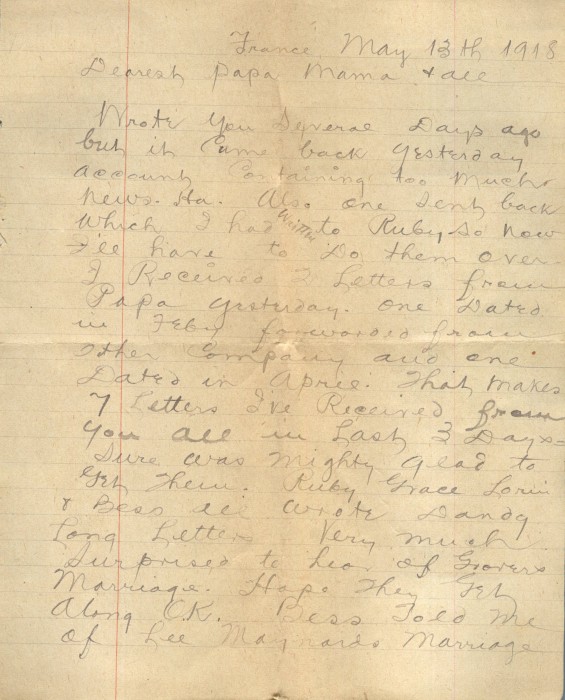 France May 13th 1918
Dearest Papa Mama & all
Wrote you Several Days ago
but it Came back yesterday
account Containing too Much
News. Ha. Also one Sent back
Which I had Written to Ruby So Now
I'll have to Do them over.
I Received 2 Letters from
Papa yesterday. One Dated
in Feby forwarded from
other Company and one
Dated in April. That makes
7 Letters I've Received from
you all in Last 3 Days-
Sure was Mighty Glad to
Get Them. Ruby Grace Lorin
& Bess all wrote Dandy
Long Letters Very much
Surprised to hear of Grovers
Marriage. Hope They Get
Along O.K. Bess Told Me
of Lee Maynards Marriage